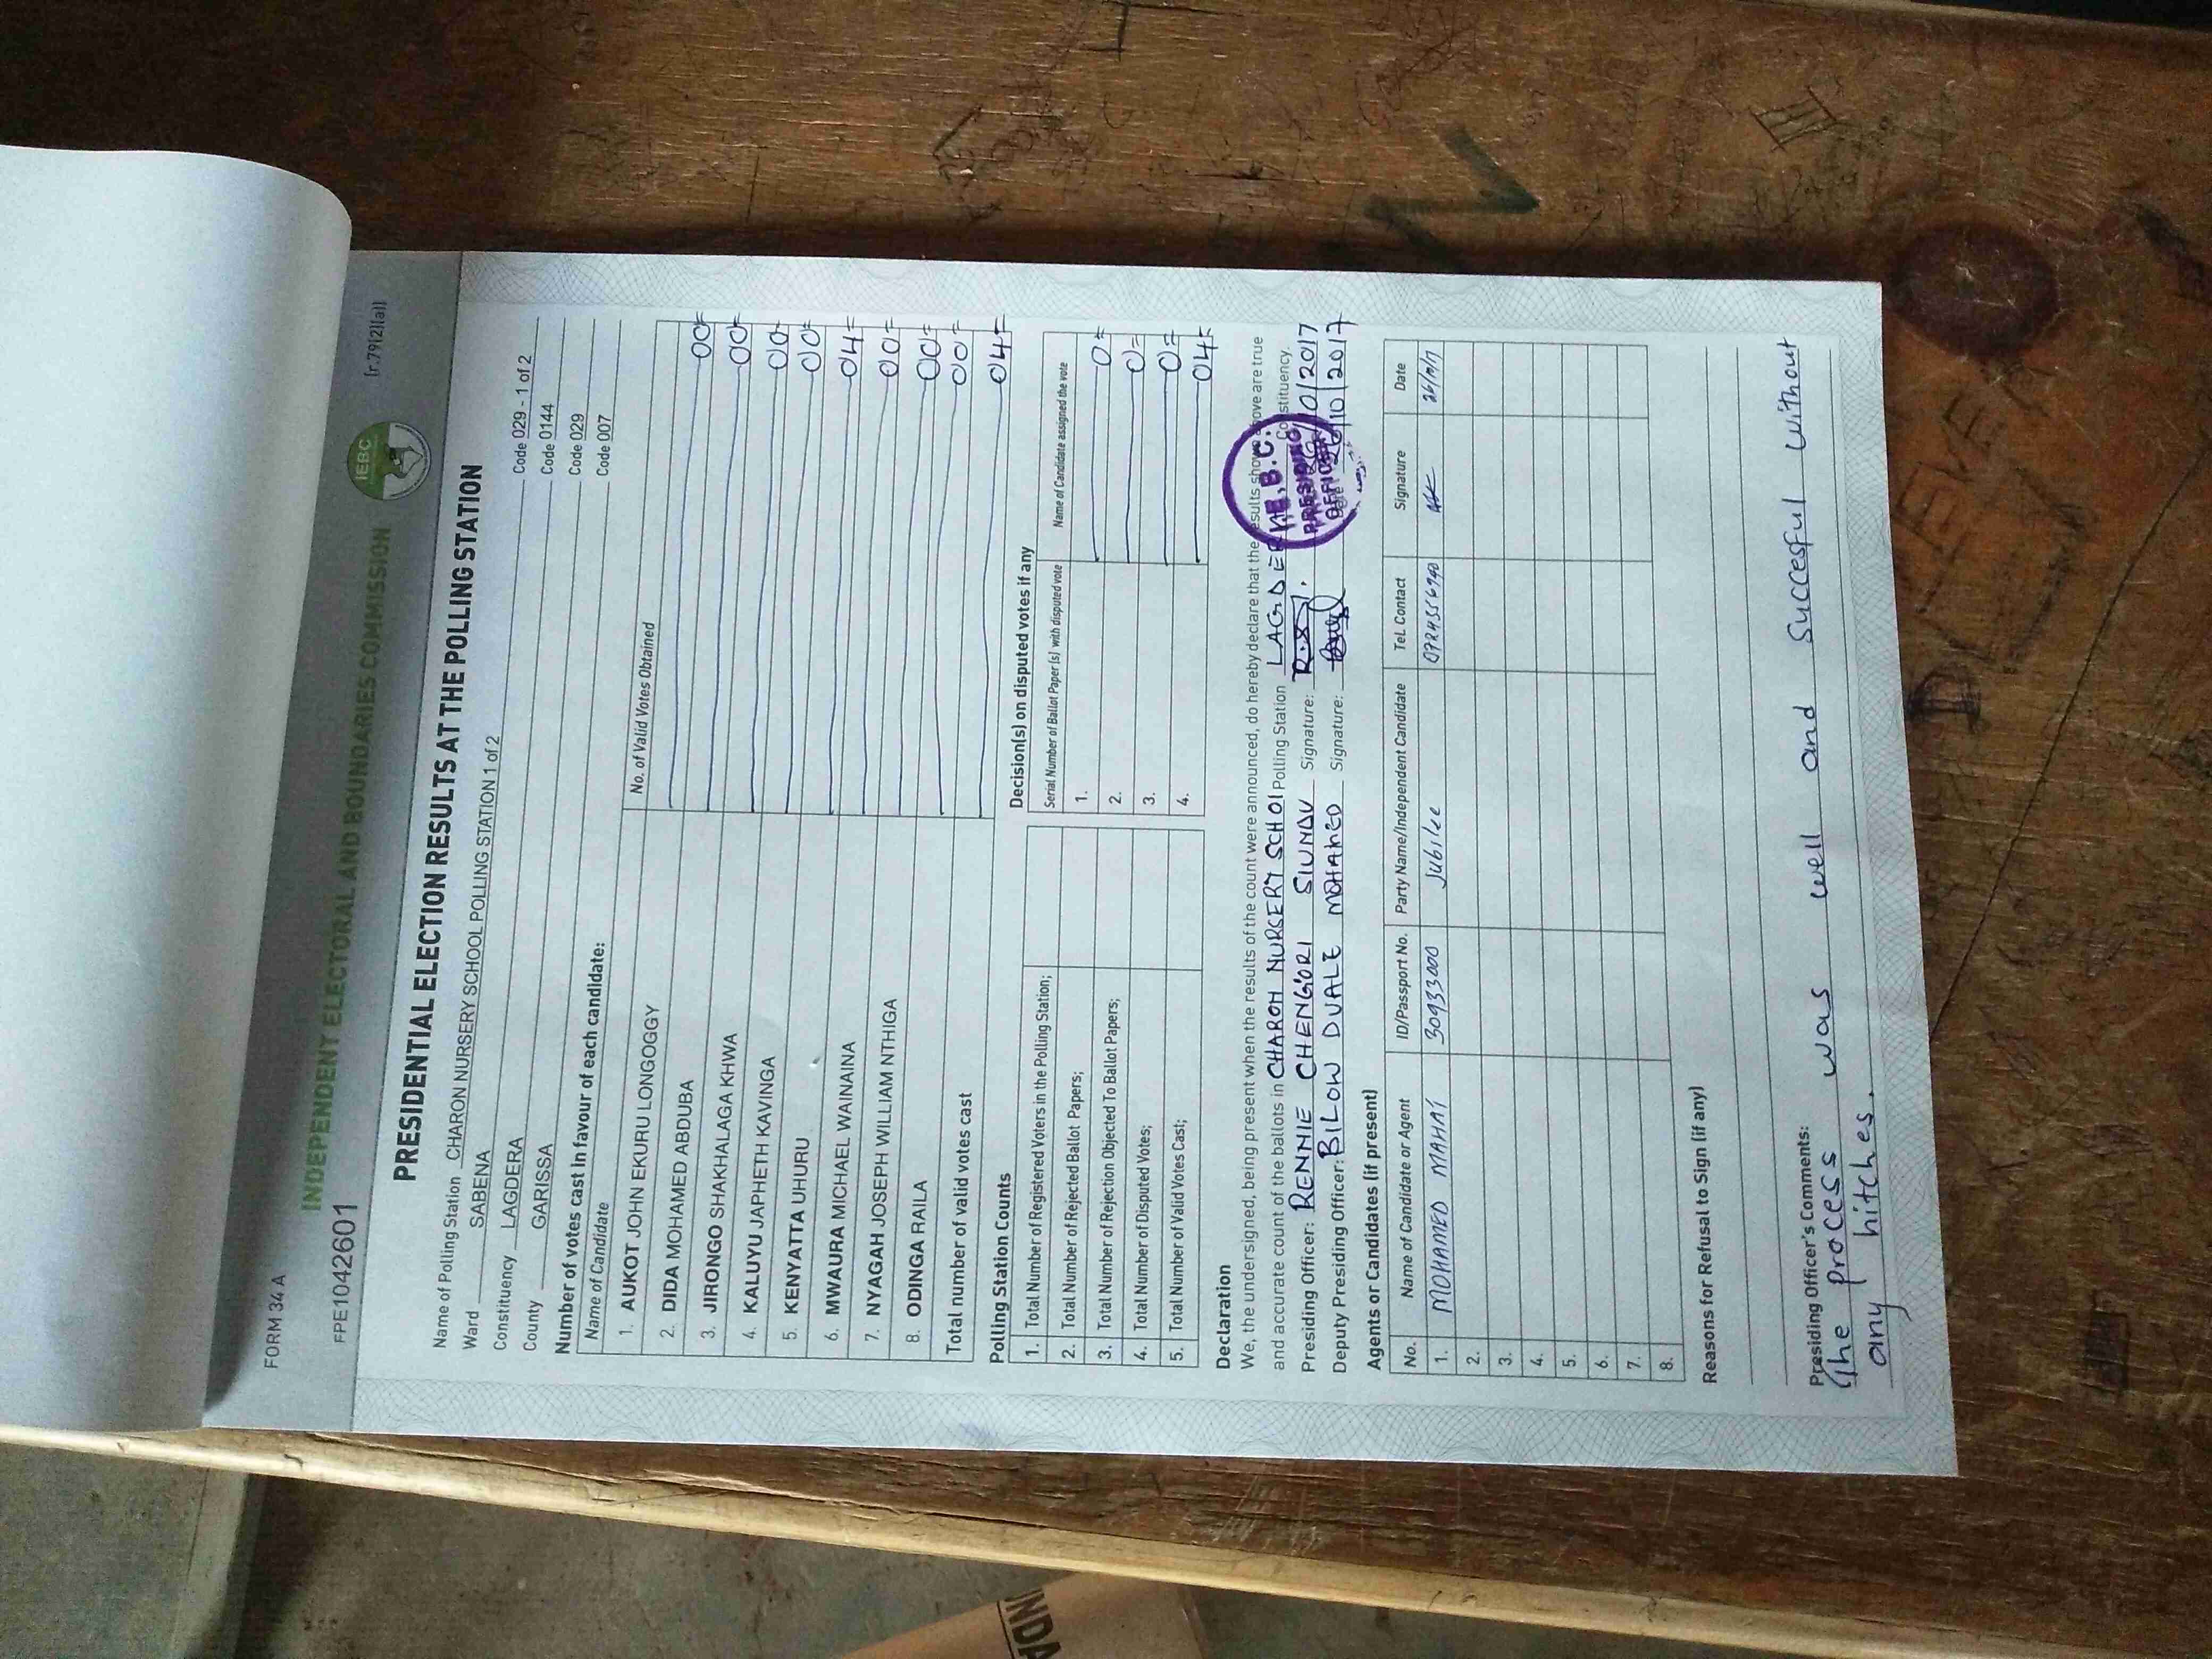 FORM 34 A
[r.79(2)(a)]
IEBC
INDEPENDENT ELECTORAL AND BOUNDARIES COMMISSION
FPE1042601
PRESIDENTIAL ELECTION RESULTS AT THE POLLING STATION
Name of Polling Station CHARON NURSERY SCHOOL POLLING STATION 1 of 2 Code 029 - 1 of 2
Ward SABENA Code 0144
Constituency LAGDERA Code 029
County GARISSA Code 007
Number of votes cast in favour of each candidate:
Name of Candidate No. of Valid Votes Obtained
1. AUKOT JOHN EKURU LONGOGGY 00=
2. DIDA MOHAMED ABDUBA 00=
3. JIRONGO SHAKHALAGA KHWA 00=
4. KALUYU JAPHETH KAVINGA 00=
5. KENYATTA UHURU 04=
6. MWAURA MICHAEL WAINAINA 00=
7. NYAGAH JOSEPH WILLIAM NTHIGA 00=
8. ODINGA RAILA 00=
Total number of valid votes cast 04=
Polling Station Counts
Decision(s) on disputed votes if any
Serial Number of Ballot Paper(s) with disputed vote Name of Candidate assigned the vote
1. Total Number of Registered Voters in the Polling Station; 1.
2. Total Number of Rejected Ballot Papers; 2. 0=
3. Total Number of Rejection Objected To Ballot Papers; 3. 0=
4. Total Number of Disputed Votes; 4. 0=
5. Total Number of Valid Votes Cast; 04=
Declaration
We, the undersigned, being present when the results of the count were announced, do hereby declare that the results shown above are true
and accurate count of the ballots in CHARON NURSERY SCHOOL Polling Station LAGDERA Constituency.
Presiding Officer: RENNIE CHENG'ORI SIUNDU Signature: 26/10/2017
Deputy Presiding Officer: BILOW DUALE MOHAMED Signature: 26/10/2017
I.E.B.C.
PRESIDING
OFFICER
Agents or Candidates (if present)
No. Name of Candidate or Agent ID/Passport No. Party Name/Independent Candidate Tel. Contact Signature Date
1. MOHAMED MAHAT 30933000 Jubilee
2.
3.
4.
5.
6.
7.
8.
Reasons for Refusal to Sign (if any)
Presiding Officer's Comments:
The process was well and Succesful without
any hitches.